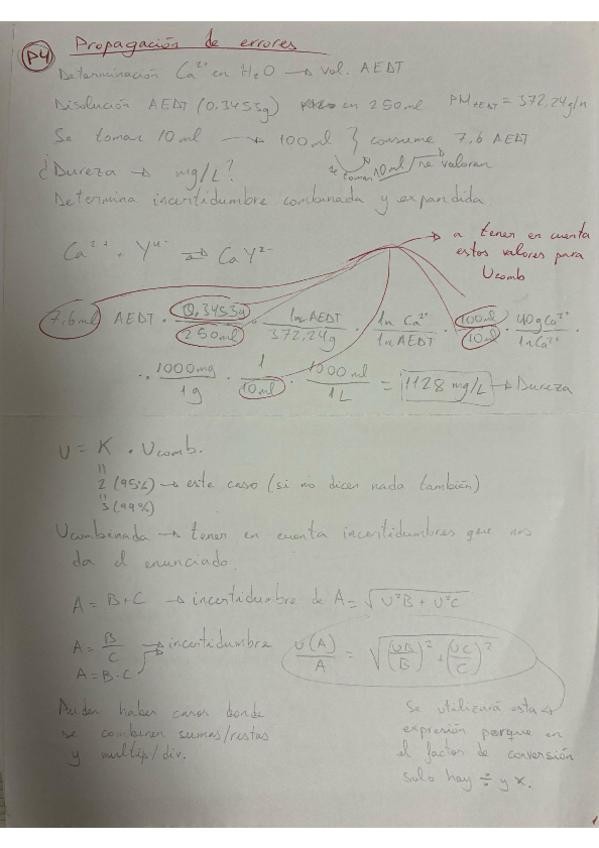 P4 Propagación de errores
Determinación Ca²⁺ en H₂O → vol. AEDT
Disolución AEDT (0.3453g) en 250ml PM AEDT = 372,24g/n
Se toman 10 ml → 100ml } consume 7,6 AEDT
se toman 10ml / se valoran
¿Dureza → mg/L?
Determina incertidumbre combinada y expandida
→ a tener en cuenta
estos valores para
Ucomb
Ca²⁺ + Y⁴⁻ ⇌ CaY²⁻
7,6ml AEDT · 0,3453g / 250ml · 1n AEDT / 372,24g · 1n Ca²⁺ / 1n AEDT · 100ml / 10ml · 40g Ca²⁺ / 1n Ca²⁺
· 1000mg / 1g · 1 / 10ml · 1000ml / 1L = 1128 mg/L → Dureza
U = K · Ucomb.
"
2 (95%) → este caso (si no dicen nada también)
"
3 (99%)
Ucombinada → tener en cuenta incertidumbres que nos
da el enunciado.
A = B + C → incertidumbre de A = √U²B + U²C
A = B / C → incertidumbre U(A) / A = √(UB / B)² + (UC / C)²
A = B · C
Pueden haber casos donde
se combinen sumas/restas
y multip/div.
Se utilizará esta
expresión porque en
el factor de conversión
solo hay ÷ y x.
1